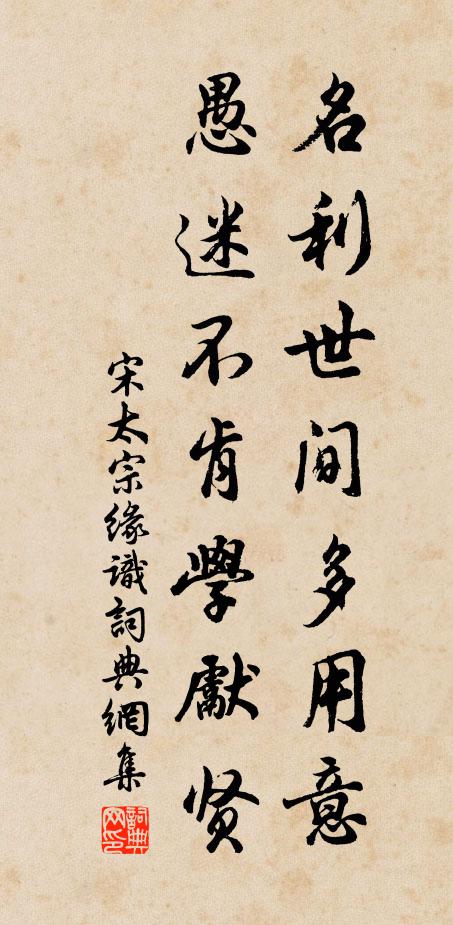 名利世间多用意
愚迷不肯學獻贤
宋太宗緣識詞典網集
詞典网印